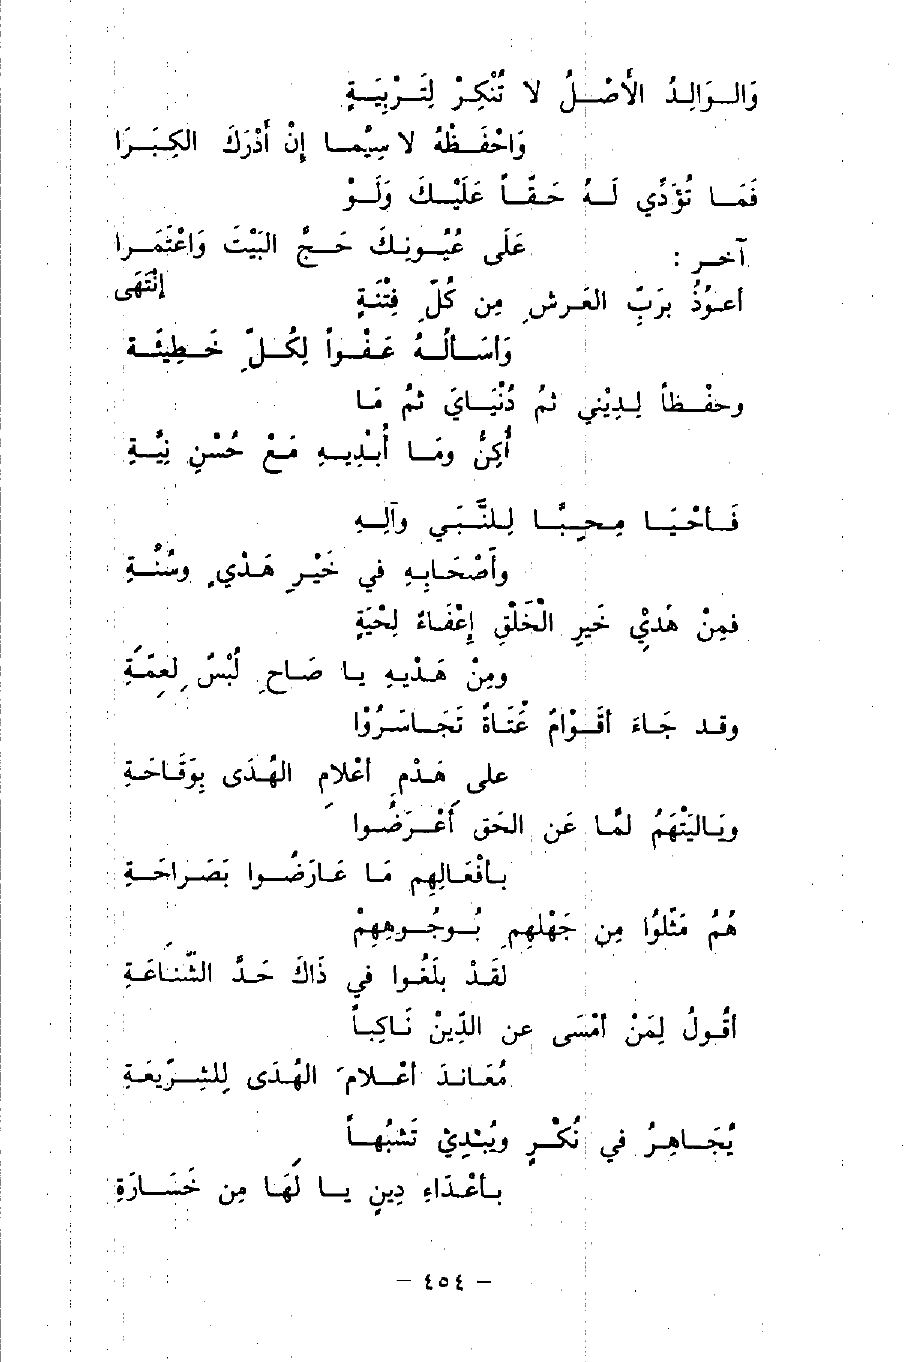 وَالـوَالِـدُ الأَصْـلُ لا تُنْكِرْ لِتَـرْبِيَـةٍ
وَاحْفَـظْهُ لا سِيَّمـا إِنْ أَدْرَكَ الكِبَـرَا
فَمَـا تُؤَدِّي لَـهُ حَـقّـاً عَلَيْـكَ وَلَـوْ
عَلَى عُيُـونِـكَ حَـجَّ البَيْتَ وَاعْتَمَـرا
آخـر :
إنْتَهَى
أعـوُذُ بِرَبِّ العَـرشِ مِن كُلِّ فِتْنَـةٍ
وَأَسْـأَلُـهُ عَـفْـواً لِكُـلِّ خَـطِيْئَـةٍ
وحفْـظـاً لِـدِيْنِي ثُمَّ دُنْيَـايَ ثُمَّ مَا
أُكِنُّ ومَـا أُبْـدِيـهِ مَـعْ حُسْنِ نِيَّـةٍ
فَـأَحْيَـا مُحِـبًّـا لِلنَّـبـي وآلِـهِ
وأَصْحَابِـهِ في خَيْـرِ هَـدْيٍ وسُنَّـةِ
فَمِنْ هَدْيِ خَيرِ الْخَلْقِ إِعْفَاءُ لِحْيَةٍ
ومِنْ هَـدْيِـهِ يـا صَـاحِ لُبْسٌ لِعِمَّـةِ
وقـد جَـاءَ أَقْـوَامٌ عُتَـاةٌ تَجَـاسَـرُوْا
على هَـدْمِ أعْلامِ الهُدَى بِوَقَـاحَـةِ
ويَـالَيْتَهُمْ لَمَّـا عَنِ الحَقِ أَعْـرَضُـوا
بـأَفْعَـالِهِم مَا عَـارَضُـوا بَصَـراحَـةِ
هُمُ مَثَّلوُا مِن جَهْلِهِم بُـوجُـوهِهِمْ
لَقَـدْ بلَغُـوا في ذَاكَ حَـدَّ الشَّنَـاعَـةِ
أقُـولُ لِمَنْ أَمْسَى عن الدِّينِ نَـاكِبـاً
مُعَـانِـدَ أعْـلامِ الهُـدَى لِلشـرِّيعَـةِ
يُجَـاهِـرُ في نُكْـرٍ ويُبْـدِيْ تَشَبُّهـاً
بـأَعْـدَاءِ دِينٍ يـا لَهَا مِن خَسَـارَةِ
– ٤٥٤ –